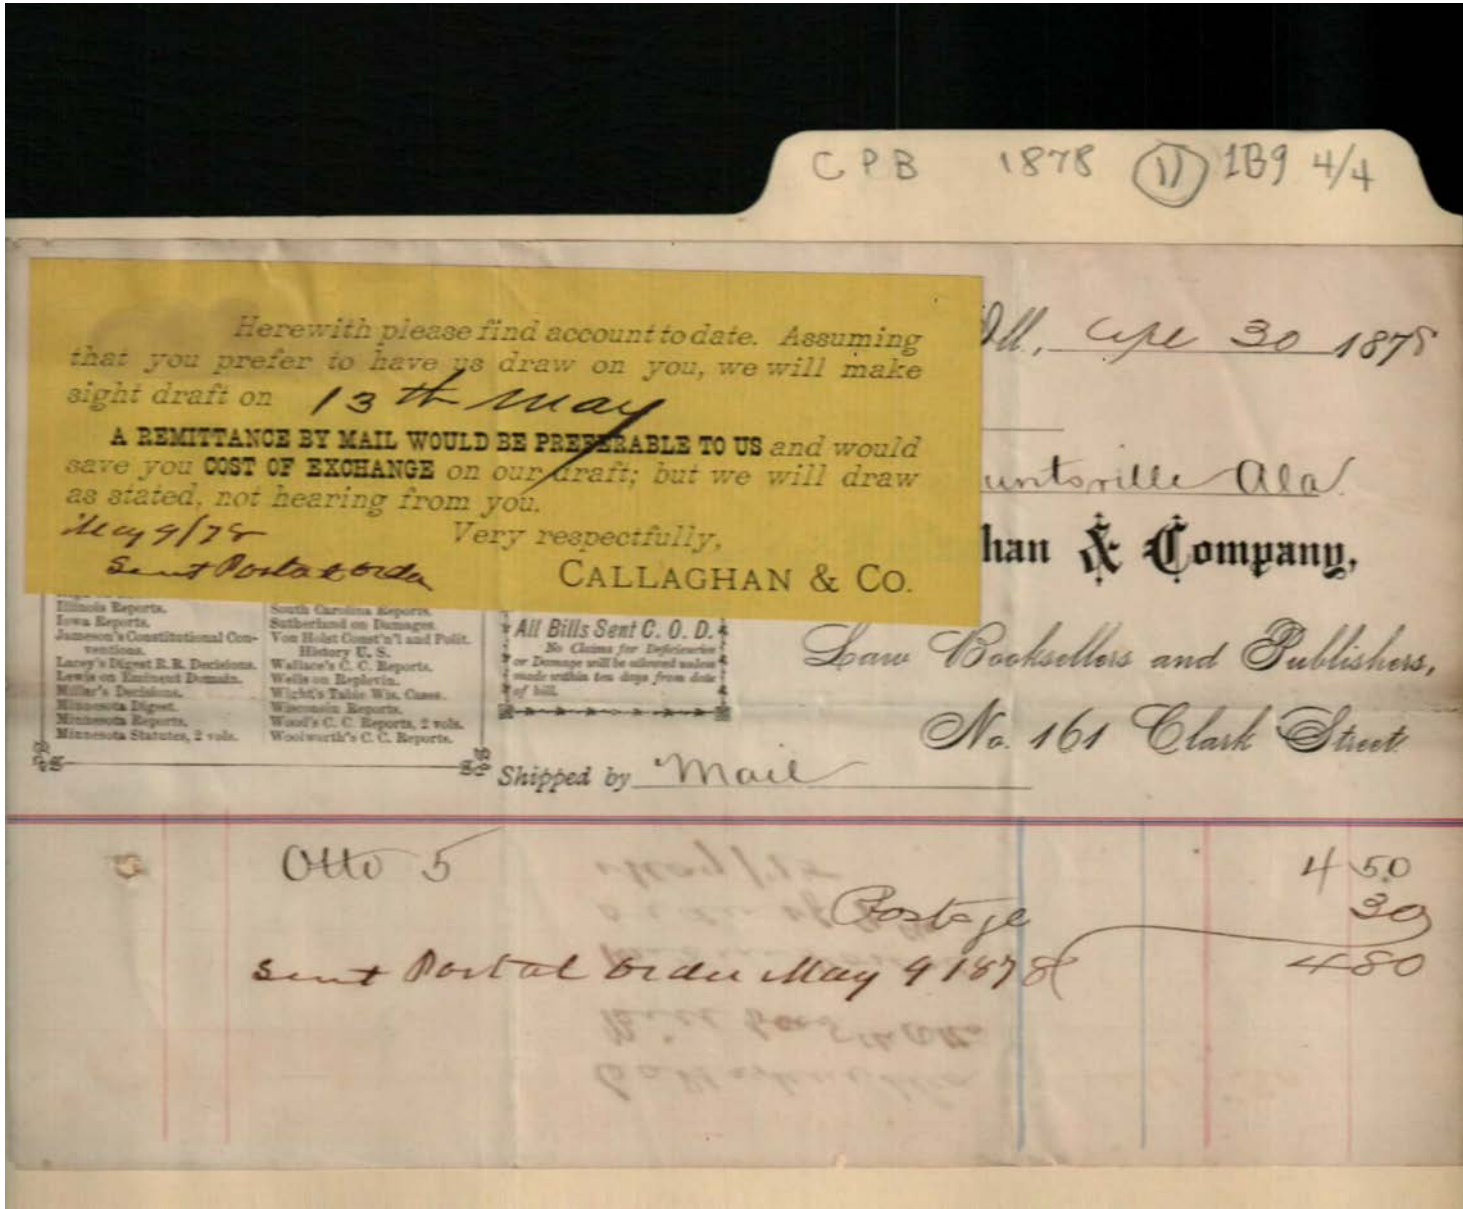 CPB 1878 11 1B9 4/4
Herewith please find account to date. Assuming
that you prefer to have us draw on you, we will make
sight draft on 13th May
A REMITTANCE BY MAIL WOULD BE PREFERABLE TO US and would
save you COST OF EXCHANGE on our draft; but we will draw
as stated, not hearing from you.
May 9/78
Very respectfully,
Sent Postal order
CALLAGHAN & CO.
Ill., Apl 30 1878
untsville Ala.
han & Company,
Law Booksellers and Publishers,
No. 161 Clark Street
Illinois Reports.
Iowa Reports.
Jameson's Constitutional Con-
ventions.
Lacey's Digest R.R. Decisions.
Lewis on Eminent Domain.
Miller's Decisions.
Minnesota Digest.
Minnesota Reports.
Minnesota Statutes, 2 vols.
South Carolina Reports.
Sutherland on Damages.
Von Holst Const'n'l and Polit.
History U. S.
Wallace's C. C. Reports.
Wells on Replevin.
Wight's Table Wis. Cases.
Wisconsin Reports.
Wood's C. C. Reports, 2 vols.
Woolworth's C. C. Reports.
All Bills Sent C. O. D.
No Claims for Deficiencies
or Damage will be allowed unless
made within ten days from date
of bill.
Shipped by Mail
Otto 5 4 50
Postage 30
Sent Postal order May 9 1878 4 80